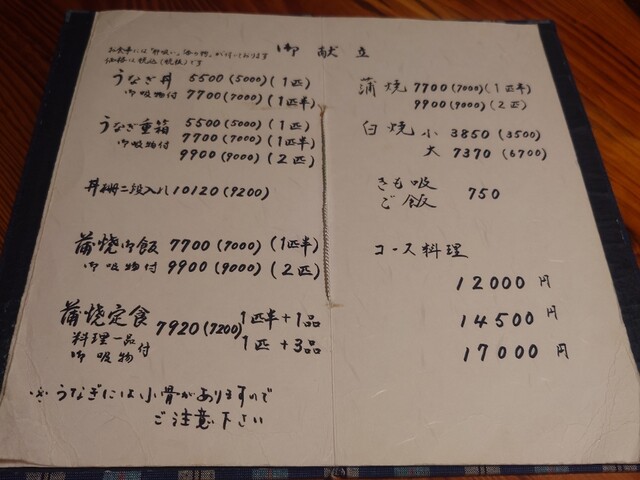 御献立
お食事には「肝吸い」「お新香」が付いております
価格は税込(税抜)です
うなぎ丼 5500(5000)(1匹)
御吸物付 7700(7000)(1匹半)
うなぎ重箱 5500(5000)(1匹)
御吸物付 7700(7000)(1匹半)
9900(9000)(2匹)
丼 二段入り 10120(9200)
蒲焼御飯 7700(7000)(1匹半)
御吸物付 9900(9000)(2匹)
蒲焼定食 7920(7200) 1匹半+1品
料理一品 御吸物 付 1匹+3品
※うなぎには小骨がありますので
ご注意下さい
蒲焼 7700(7000)(1匹半)
9900(9000)(2匹)
白焼 小 3850(3500)
大 7370(6700)
きも吸
ご飯 750
コース料理
12000円
14500円
17000円